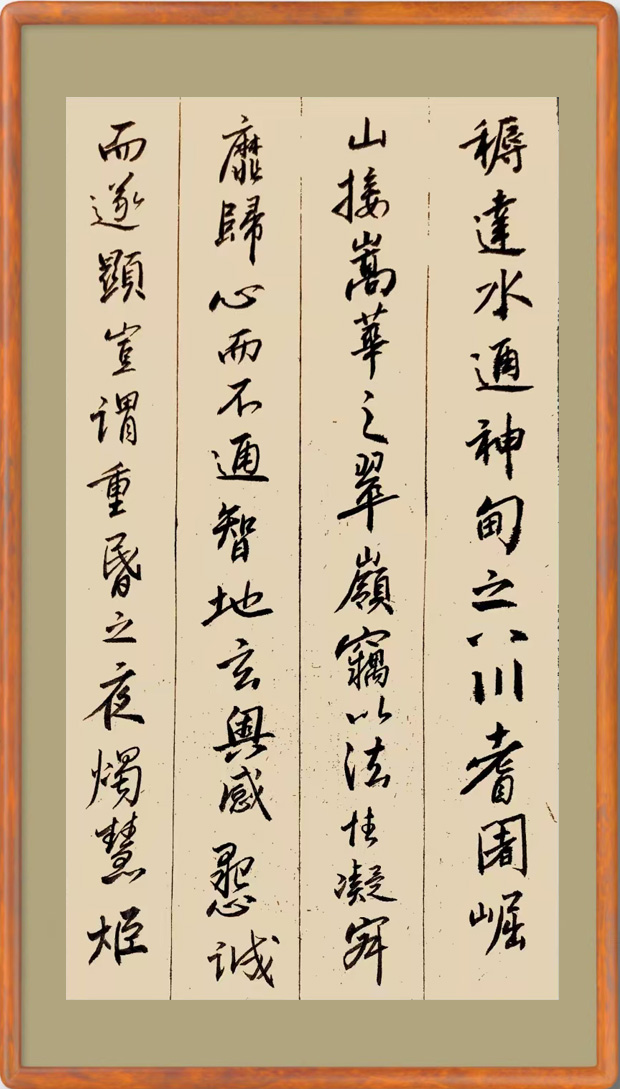 褥達水通神甸之八川耆闍崛
山接嵩華之翠嶺竊以法性凝寂
靡歸心而不通智地玄奧感懇誠
而遂顯豈謂重昏之夜燭慧炬